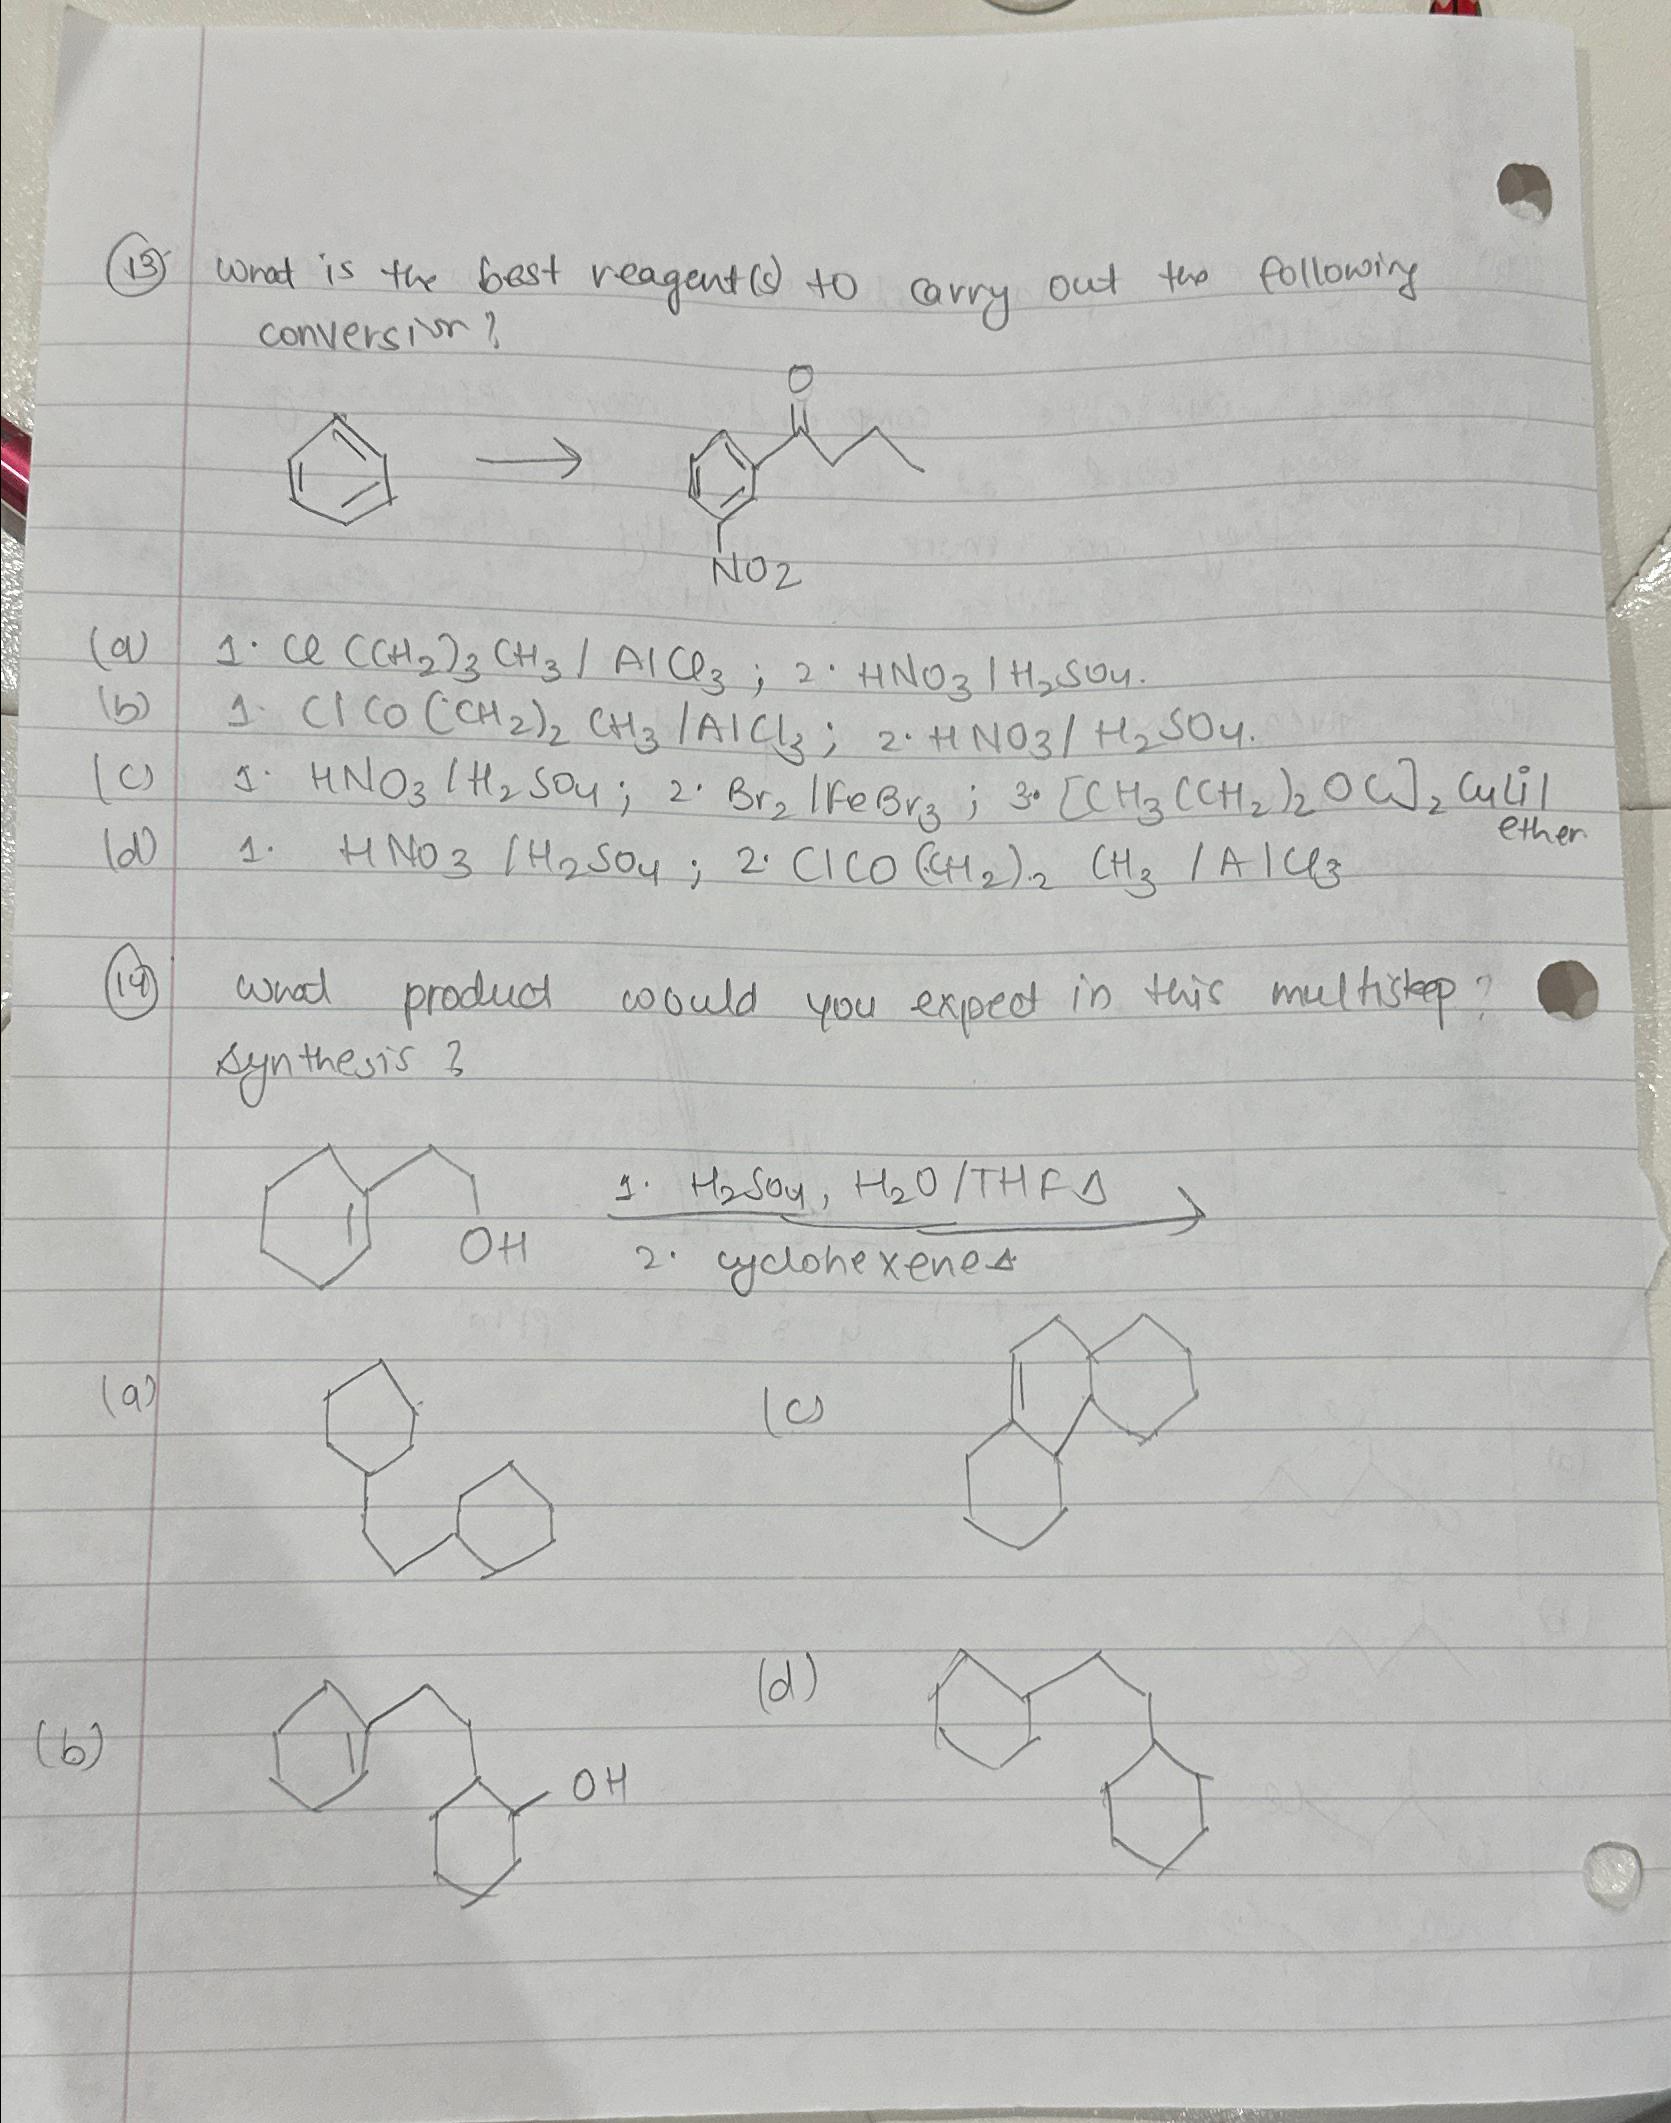 13 What is the best reagent(s) to carry out the following
conversion?
O
NO2
(a) 1. Cl (CH2)3 CH3 / AlCl3 ; 2. HNO3 / H2SO4.
(b) 1. ClCO (CH2)2 CH3 / AlCl3 ; 2. HNO3 / H2SO4.
(c) 1. HNO3 / H2SO4 ; 2. Br2 / FeBr3 ; 3. [CH3 (CH2)2 OC]2 CuLi /
ether
(d) 1. HNO3 / H2SO4 ; 2. ClCO (CH2)2 CH3 / AlCl3
14 What product would you expect in this multistep?
synthesis?
OH
1. H2SO4, H2O/THF Δ
2. cyclohexene Δ
(a)
(c)
(b)
OH
(d)